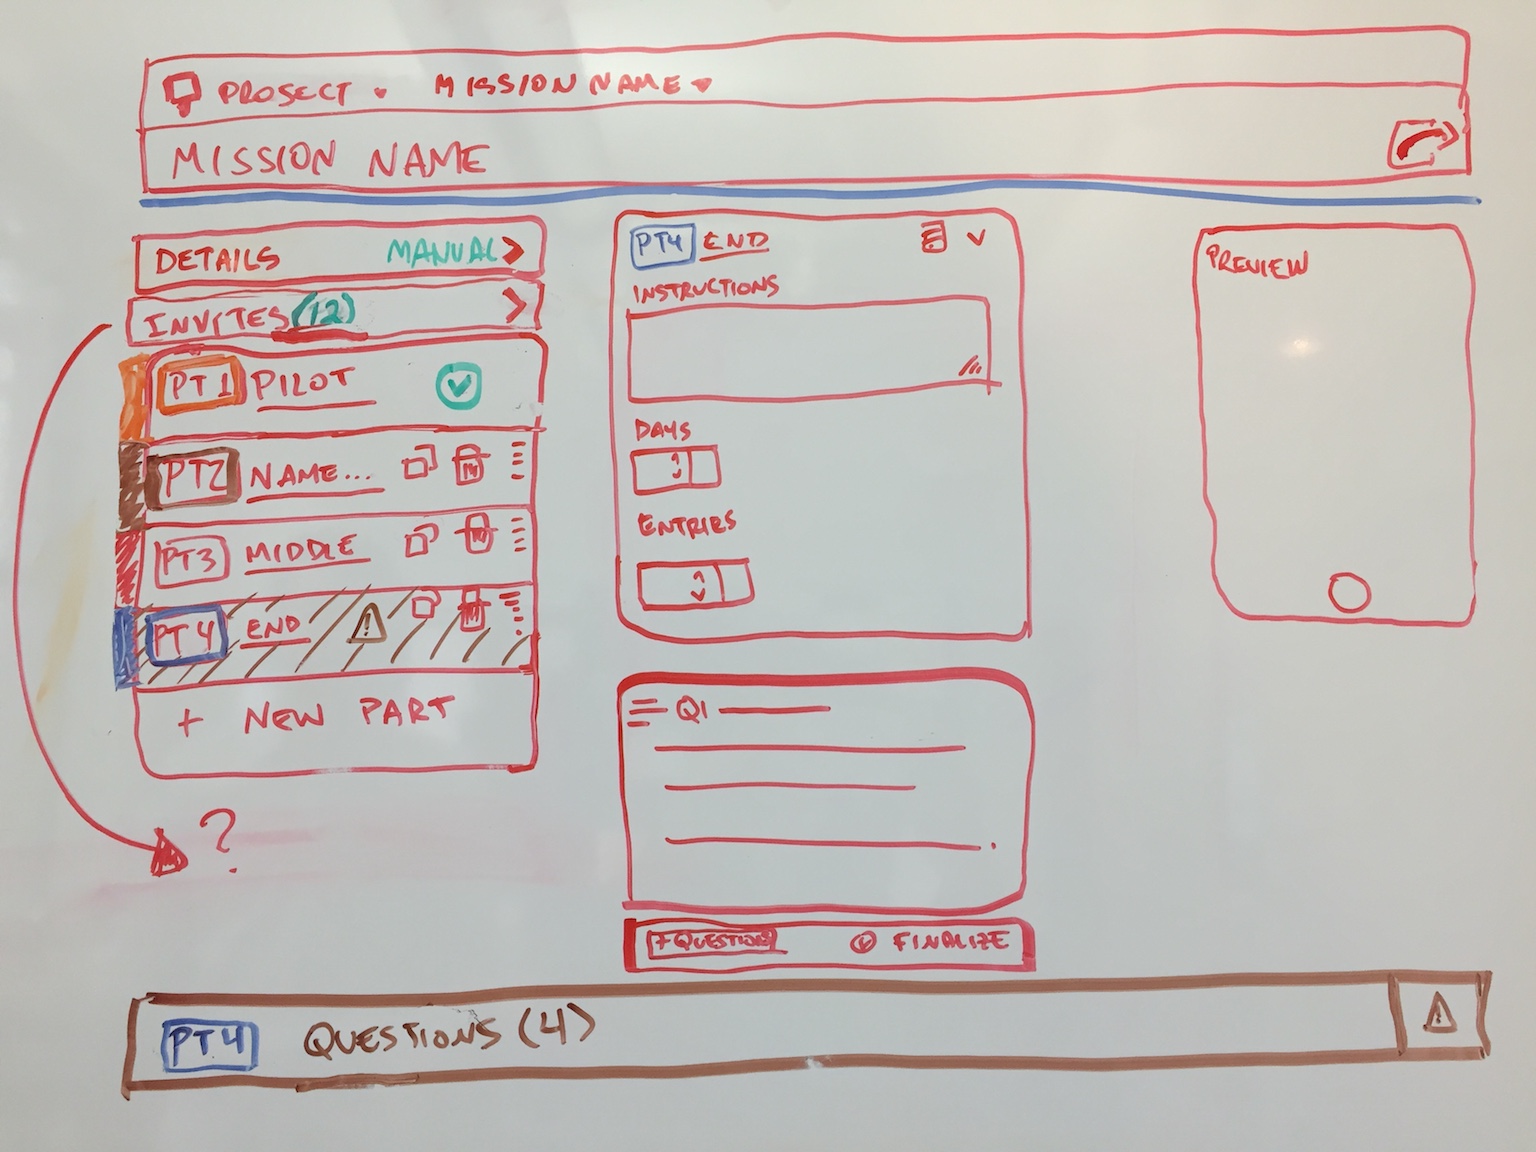 PROJECT MISSION NAME
MISSION NAME
DETAILS MANUAL
INVITES (12)
PT1 PILOT
PT2 NAME...
PT3 MIDDLE
PT4 END
+ NEW PART
?
PT4 END
INSTRUCTIONS
DAYS
ENTRIES
Q1
+ QUESTION FINALIZE
PREVIEW
PT4 QUESTIONS (4)